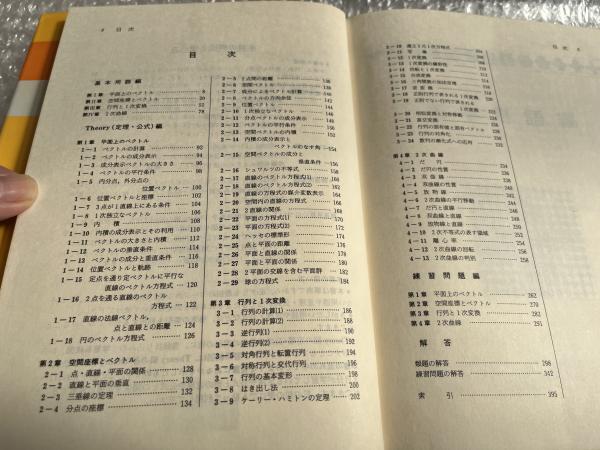 4 目次
目次
基本用語編
第Ⅰ章 平面上のベクトル 8
第Ⅱ章 空間座標とベクトル 20
第Ⅲ章 行列と1次変換 52
第Ⅳ章 2次曲線 78
Theory(定理・公式)編
第1章 平面上のベクトル
1-1 ベクトルの計算 92
1-2 ベクトルの成分表示 94
1-3 成分表示ベクトルの大きさ 96
1-4 ベクトルの平行条件 98
1-5 内分点, 外分点の
位置ベクトル 100
1-6 位置ベクトルと座標 102
1-7 3点が1直線上にある条件 104
1-8 1次独立なベクトル 106
1-9 内積 108
1-10 内積の成分表示とその利用 110
1-11 ベクトルの大きさと内積 112
1-12 ベクトルの垂直条件 114
1-13 ベクトルの成分と垂直条件 116
1-14 位置ベクトルと軌跡 118
1-15 定点を通り定ベクトルに平行な
直線のベクトル方程式 120
1-16 2点を通る直線のベクトル
方程式 122
1-17 直線の法線ベクトル,
点と直線との距離 124
1-18 円のベクトル方程式 126
第2章 空間座標とベクトル
2-1 点・直線・平面の関係 128
2-2 直線と平面の垂直 130
2-3 三垂線の定理 132
2-4 分点の座標 134
2-5 2点間の距離
2-6 空間ベクトル 138
2-7 成分によるベクトル計算
2-8 ベクトルの方向余弦
2-9 位置ベクトル
2-10 1次独立なベクトル
2-11 分点ベクトルの成分表示
2-12 ベクトルの平行条件
2-13 空間ベクトルの内積
2-14 内積の成分表示と
ベクトルのなす角 154
2-15 空間ベクトルの成分と
垂直条件 156
2-16 シュワルツの不等式
2-17 直線のベクトル方程式(1)
2-18 直線のベクトル方程式(2)
2-19 直線の方程式の媒介変数表示
2-20 空間内の直線の方程式
2-21 2直線の関係
2-22 平面の方程式(1) 170
2-23 平面の方程式(2)
2-24 ヘッセの標準形
2-25 点と平面の距離 176
2-26 平面と直線の関係 178
2-27 平面と平面の関係 180
2-28 2平面の交線を含む平面群 182
2-29 球の方程式 184
第3章 行列と1次変換
3-1 行列の計算(1) 186
3-2 行列の計算(2) 188
3-3 逆行列(1) 190
3-4 逆行列(2) 192
3-5 対角行列と転置行列 194
3-6 対称行列と交代行列 196
3-7 行列の基本変形 198
3-8 はき出し法 200
3-9 ケーリー・ハミトンの定理 202
目次 5
3-10 連立1次方程式 204
3-12 1次変換
3-13 1次変換の線形性
3-14 回転と1次変換
3-15 合成変換
3-17 逆変換
3-18 正則行列で表される1次変換
3-19 正則でない行列で表される
1次変換
3-20 相似変換と対称移動
3-21 直交変換
3-22 行列の固有値と固有ベクトル
3-24 数列の漸化式への応用
第4章 2次曲線
4-1 だ円
4-2 だ円の性質
4-3 双曲線
4-4 双曲線の性質
4-5 放物線
4-6 2次曲線の平行移動
4-7 だ円と直線
4-8 双曲線と直線
4-9 放物線と直線
4-10 2次不等式の表す領域
4-11 離心率
4-12 2次曲線の回転
4-13 2次曲線の判別 258
練習問題編
第1章 平面上のベクトル 262
第2章 空間座標とベクトル 270
第3章 行列と1次変換 282
第4章 2次曲線 291
解答
類題の解答 298
練習問題の解答 342
索引 395